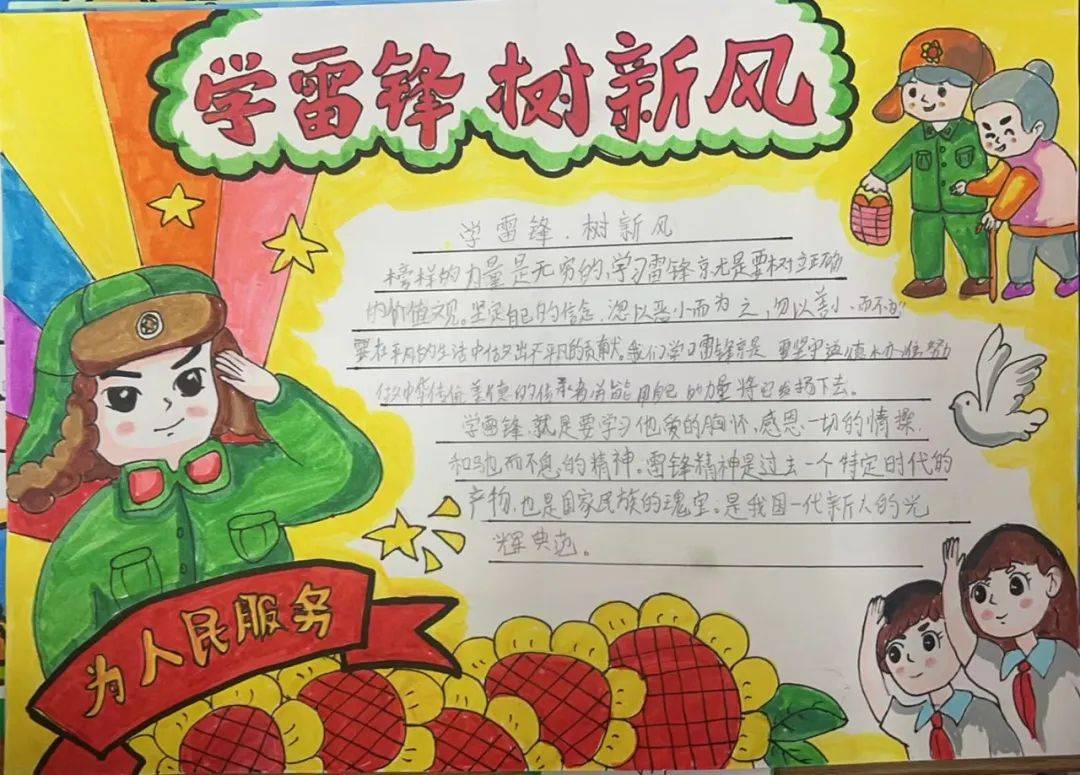 学雷锋 树新风
学雷锋.树新风
榜样的力量是无穷的,学习雷锋就是要树立正确
的价值观。坚定自己的信念,勿以恶小而为之,勿以善小而不为
要在平凡的生活中做出不平凡的贡献。我们学习雷锋就是要坚守道德
做中华传统美德的传承者,用自己的力量将它发扬下去。
学雷锋.就是要学习他的胸怀,感恩一切的情操,
和驰而不息的精神。雷锋精神是过去一个特定时代的
产物,也是国家民族的瑰宝。是我国一代新人的光
辉典范。
为人民服务